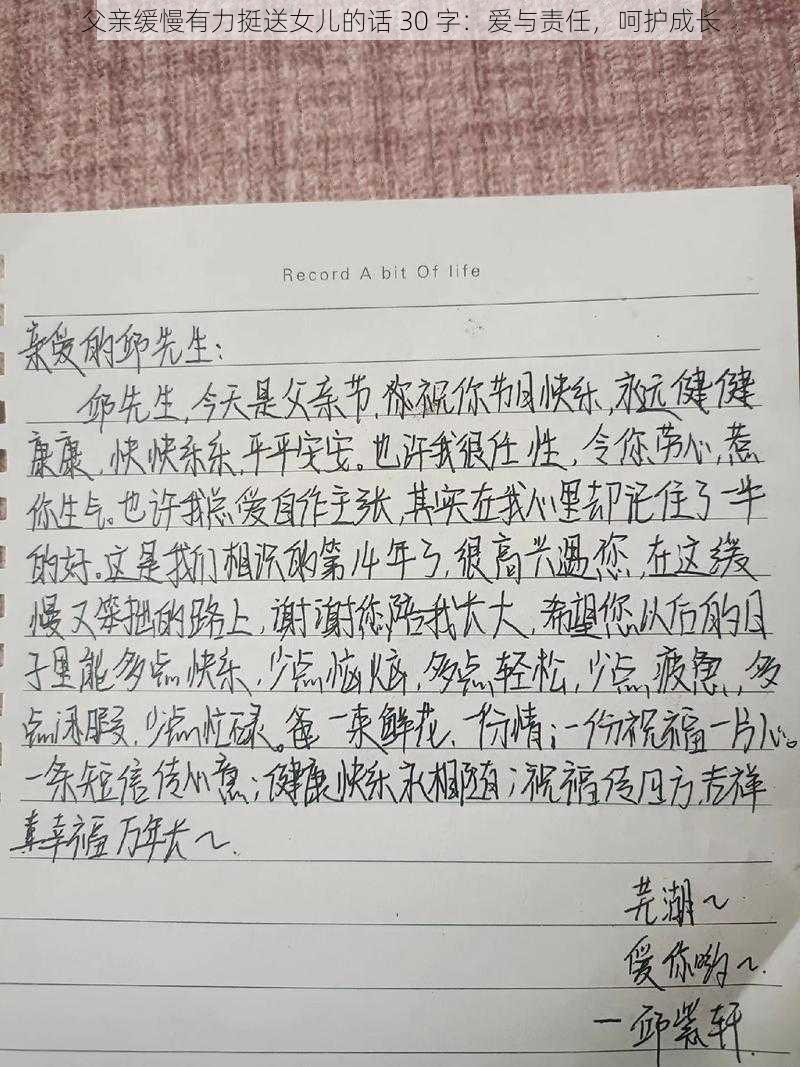 父亲缓慢有力挺送女儿的话 30 字：爱与责任，呵护成长
Record A bit Of life
亲爱的邱先生：
邱先生,今天是父亲节,你祝你节日快乐,永远健健
康康,快快乐乐,平平安安。也许我很任性,令你劳心,惹
你生气。也许我总爱自作主张,其实在我心里却记住了一生
的好。这是我们相识的第14年了,很高兴遇您,在这缓
慢又笨拙的路上,谢谢您陪我长大,希望您以后的日
子里能多点快乐,少点恼火,多点轻松,少点疲惫,多
点闲暇,少点忙碌。爸一束鲜花,一份情;一份祝福一片心。
一条短信传心意;健康快乐永相随;祝福传四方,吉祥
喜幸福万年长~.
芜湖~
爱你哟~.
一邱紫轩